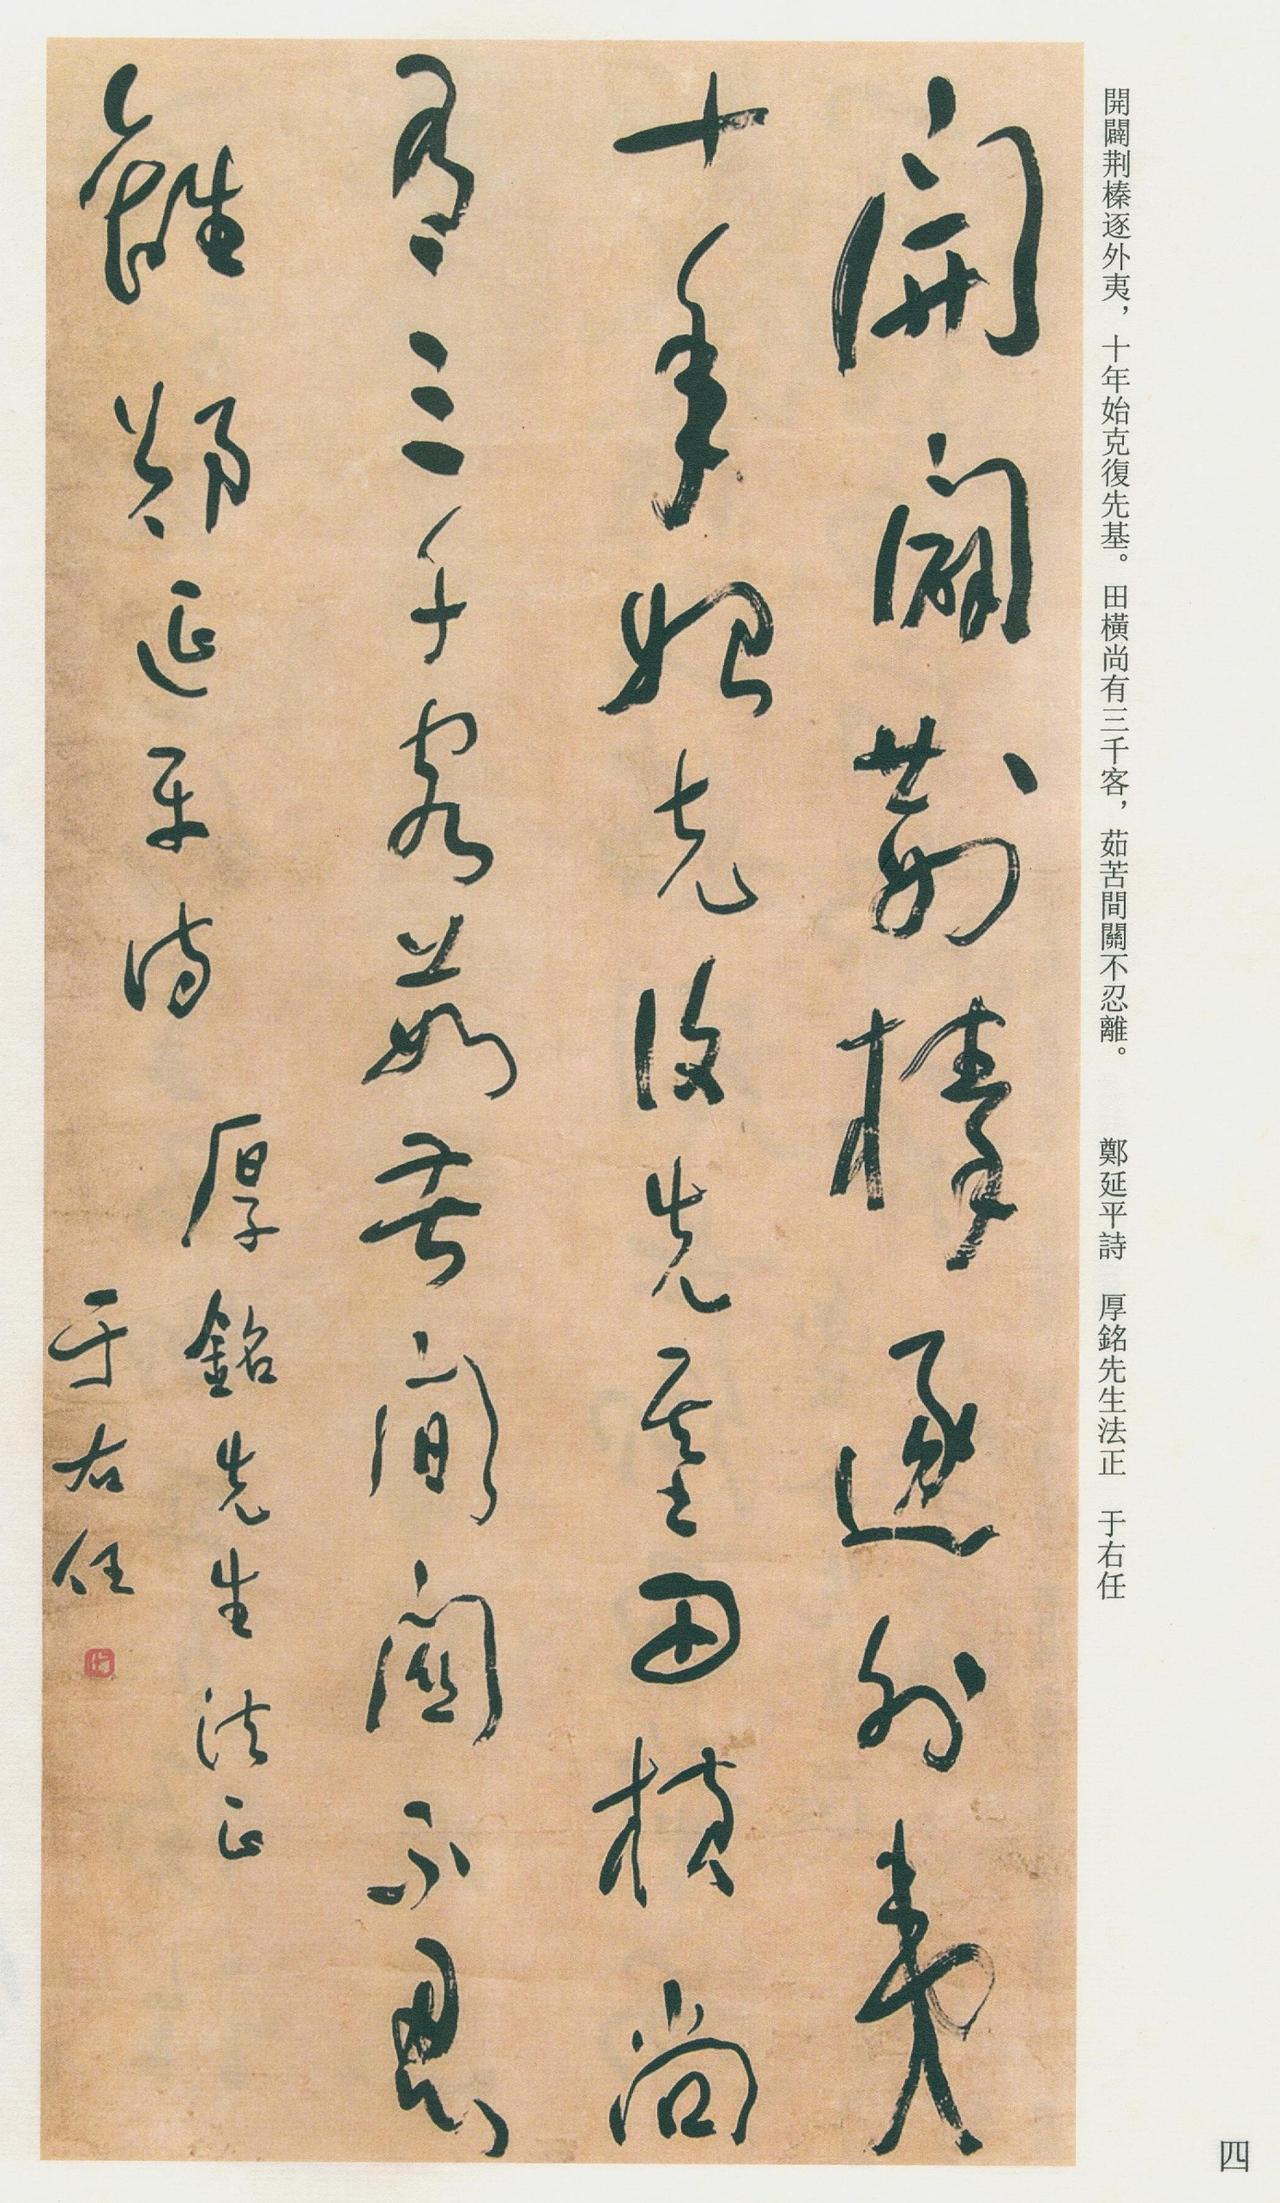 開闢荆榛逐外夷，十年始克復先基。田横尚有三千客，茹苦間關不忍離。　鄭延平詩　厚銘先生法正　于右任
開闢荆榛逐外夷
十年始克復先基田横尚
有三千客茹苦間關不忍
離鄭延平詩
厚銘先生法正
于右任
四